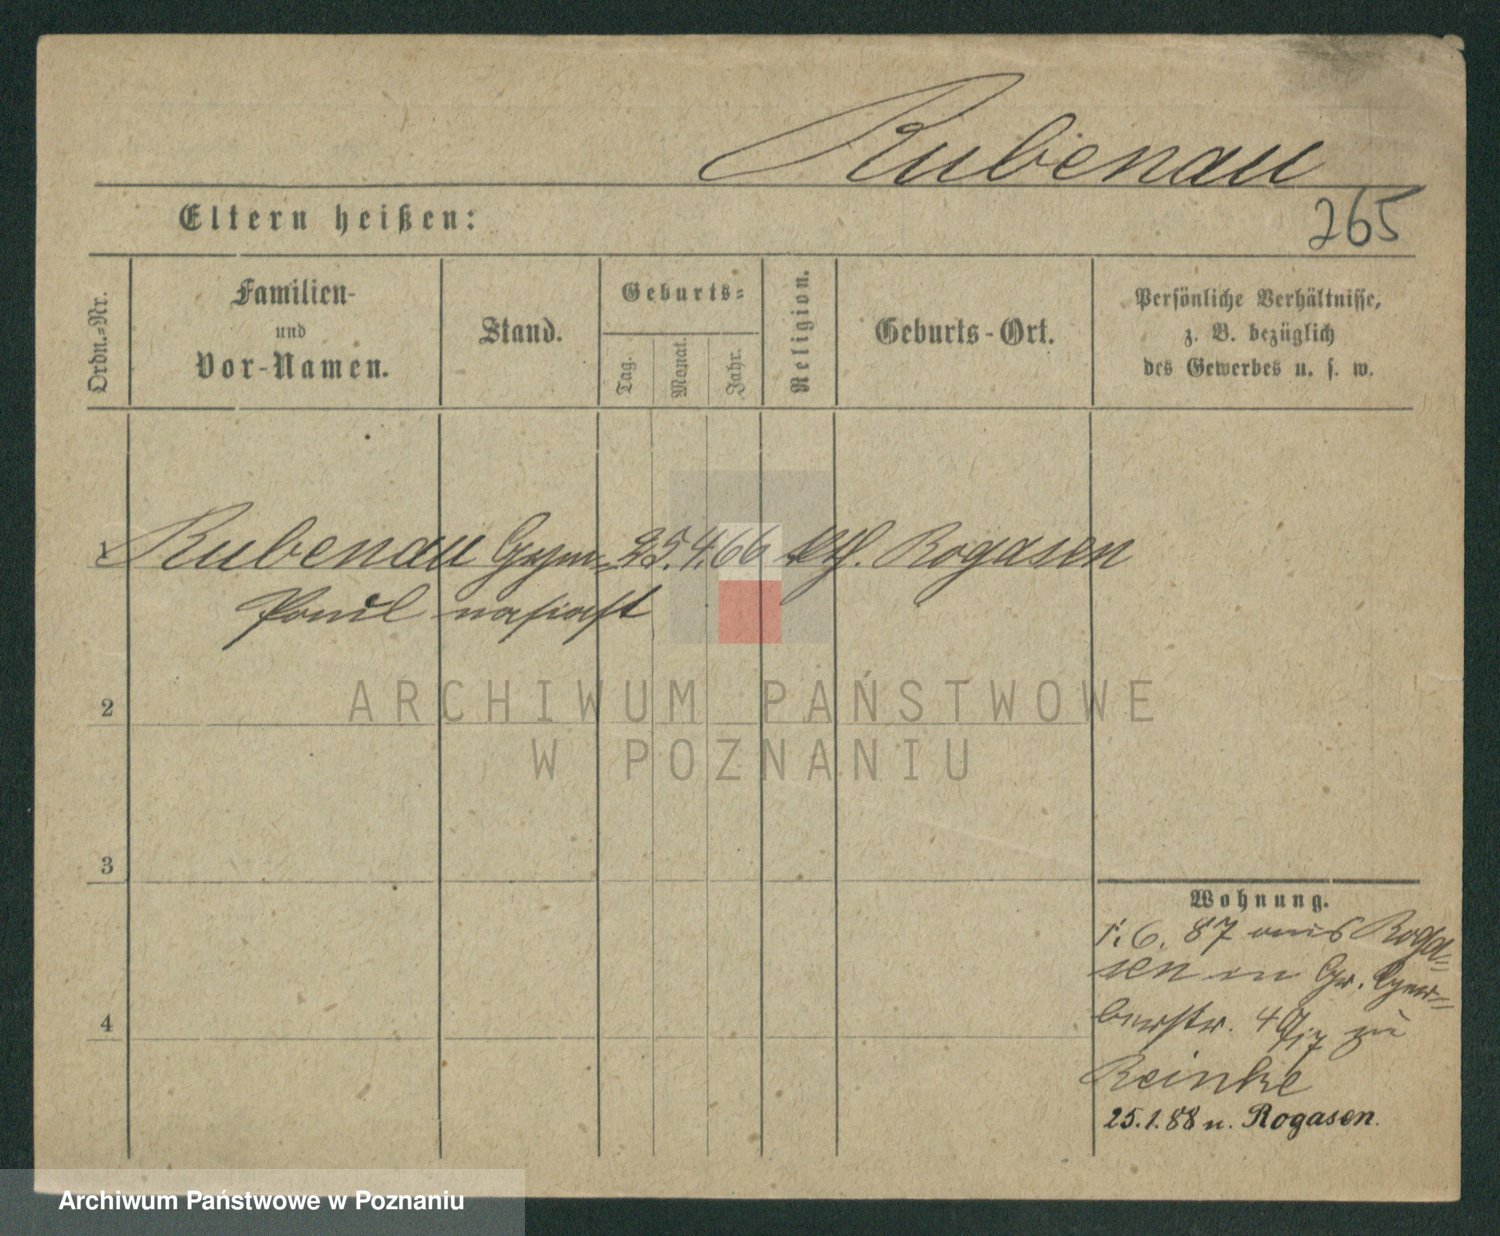 Rubenau
265
Eltern heißen:
Ordn.-Nr.
Familien-
und
Vor-Namen.
Stand.
Geburts-
Tag.
Monat.
Jahr.
Religion.
Geburts-Ort.
Persönliche Verhältnisse,
z. B. bezüglich
des Gewerbes u. s. w.
Rubenau Gym= 25.4.66 kth. Rogasen
Paul nasiast
ARCHIWUM PAŃSTWOWE
W POZNANIU
2
3
4
Wohnung.
1.6. 87 aus Roga=
sen in Gr. Ger=
berstr. 40/17 zu
Reinke
25.1.88 n. Rogasen.
Archiwum Państwowe w Poznaniu